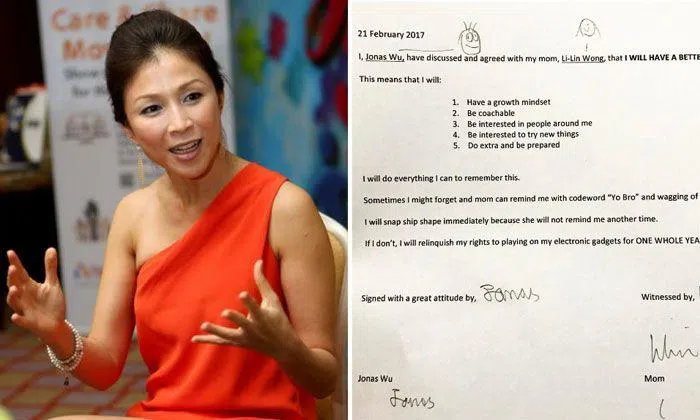 Care & Share
21 February 2017
I, Jonas Wu, have discussed and agreed with my mom, Li-Lin Wong, that I WILL HAVE A BETTE
This means that I will:
1. Have a growth mindset
2. Be coachable
3. Be interested in people around me
4. Be interested to try new things
5. Do extra and be prepared
I will do everything I can to remember this.
Sometimes I might forget and mom can remind me with codeword “Yo Bro” and wagging of
I will snap ship shape immediately because she will not remind me another time.
If I don’t, I will relinquish my rights to playing on my electronic gadgets for ONE WHOLE YEA
Signed with a great attitude by, Jonas
Witnessed by,
Jonas Wu
Mom
Jonas